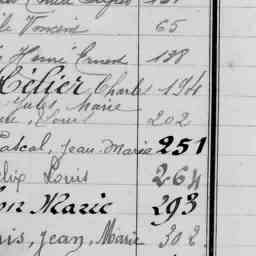 Vincent 65
Henri Ernest 138
Hélier, Charles 194
Jules, Marie
Louis 202
Pascal, Jean-Marie 251
Louis 264
Marie 293
Jean, Marie 302